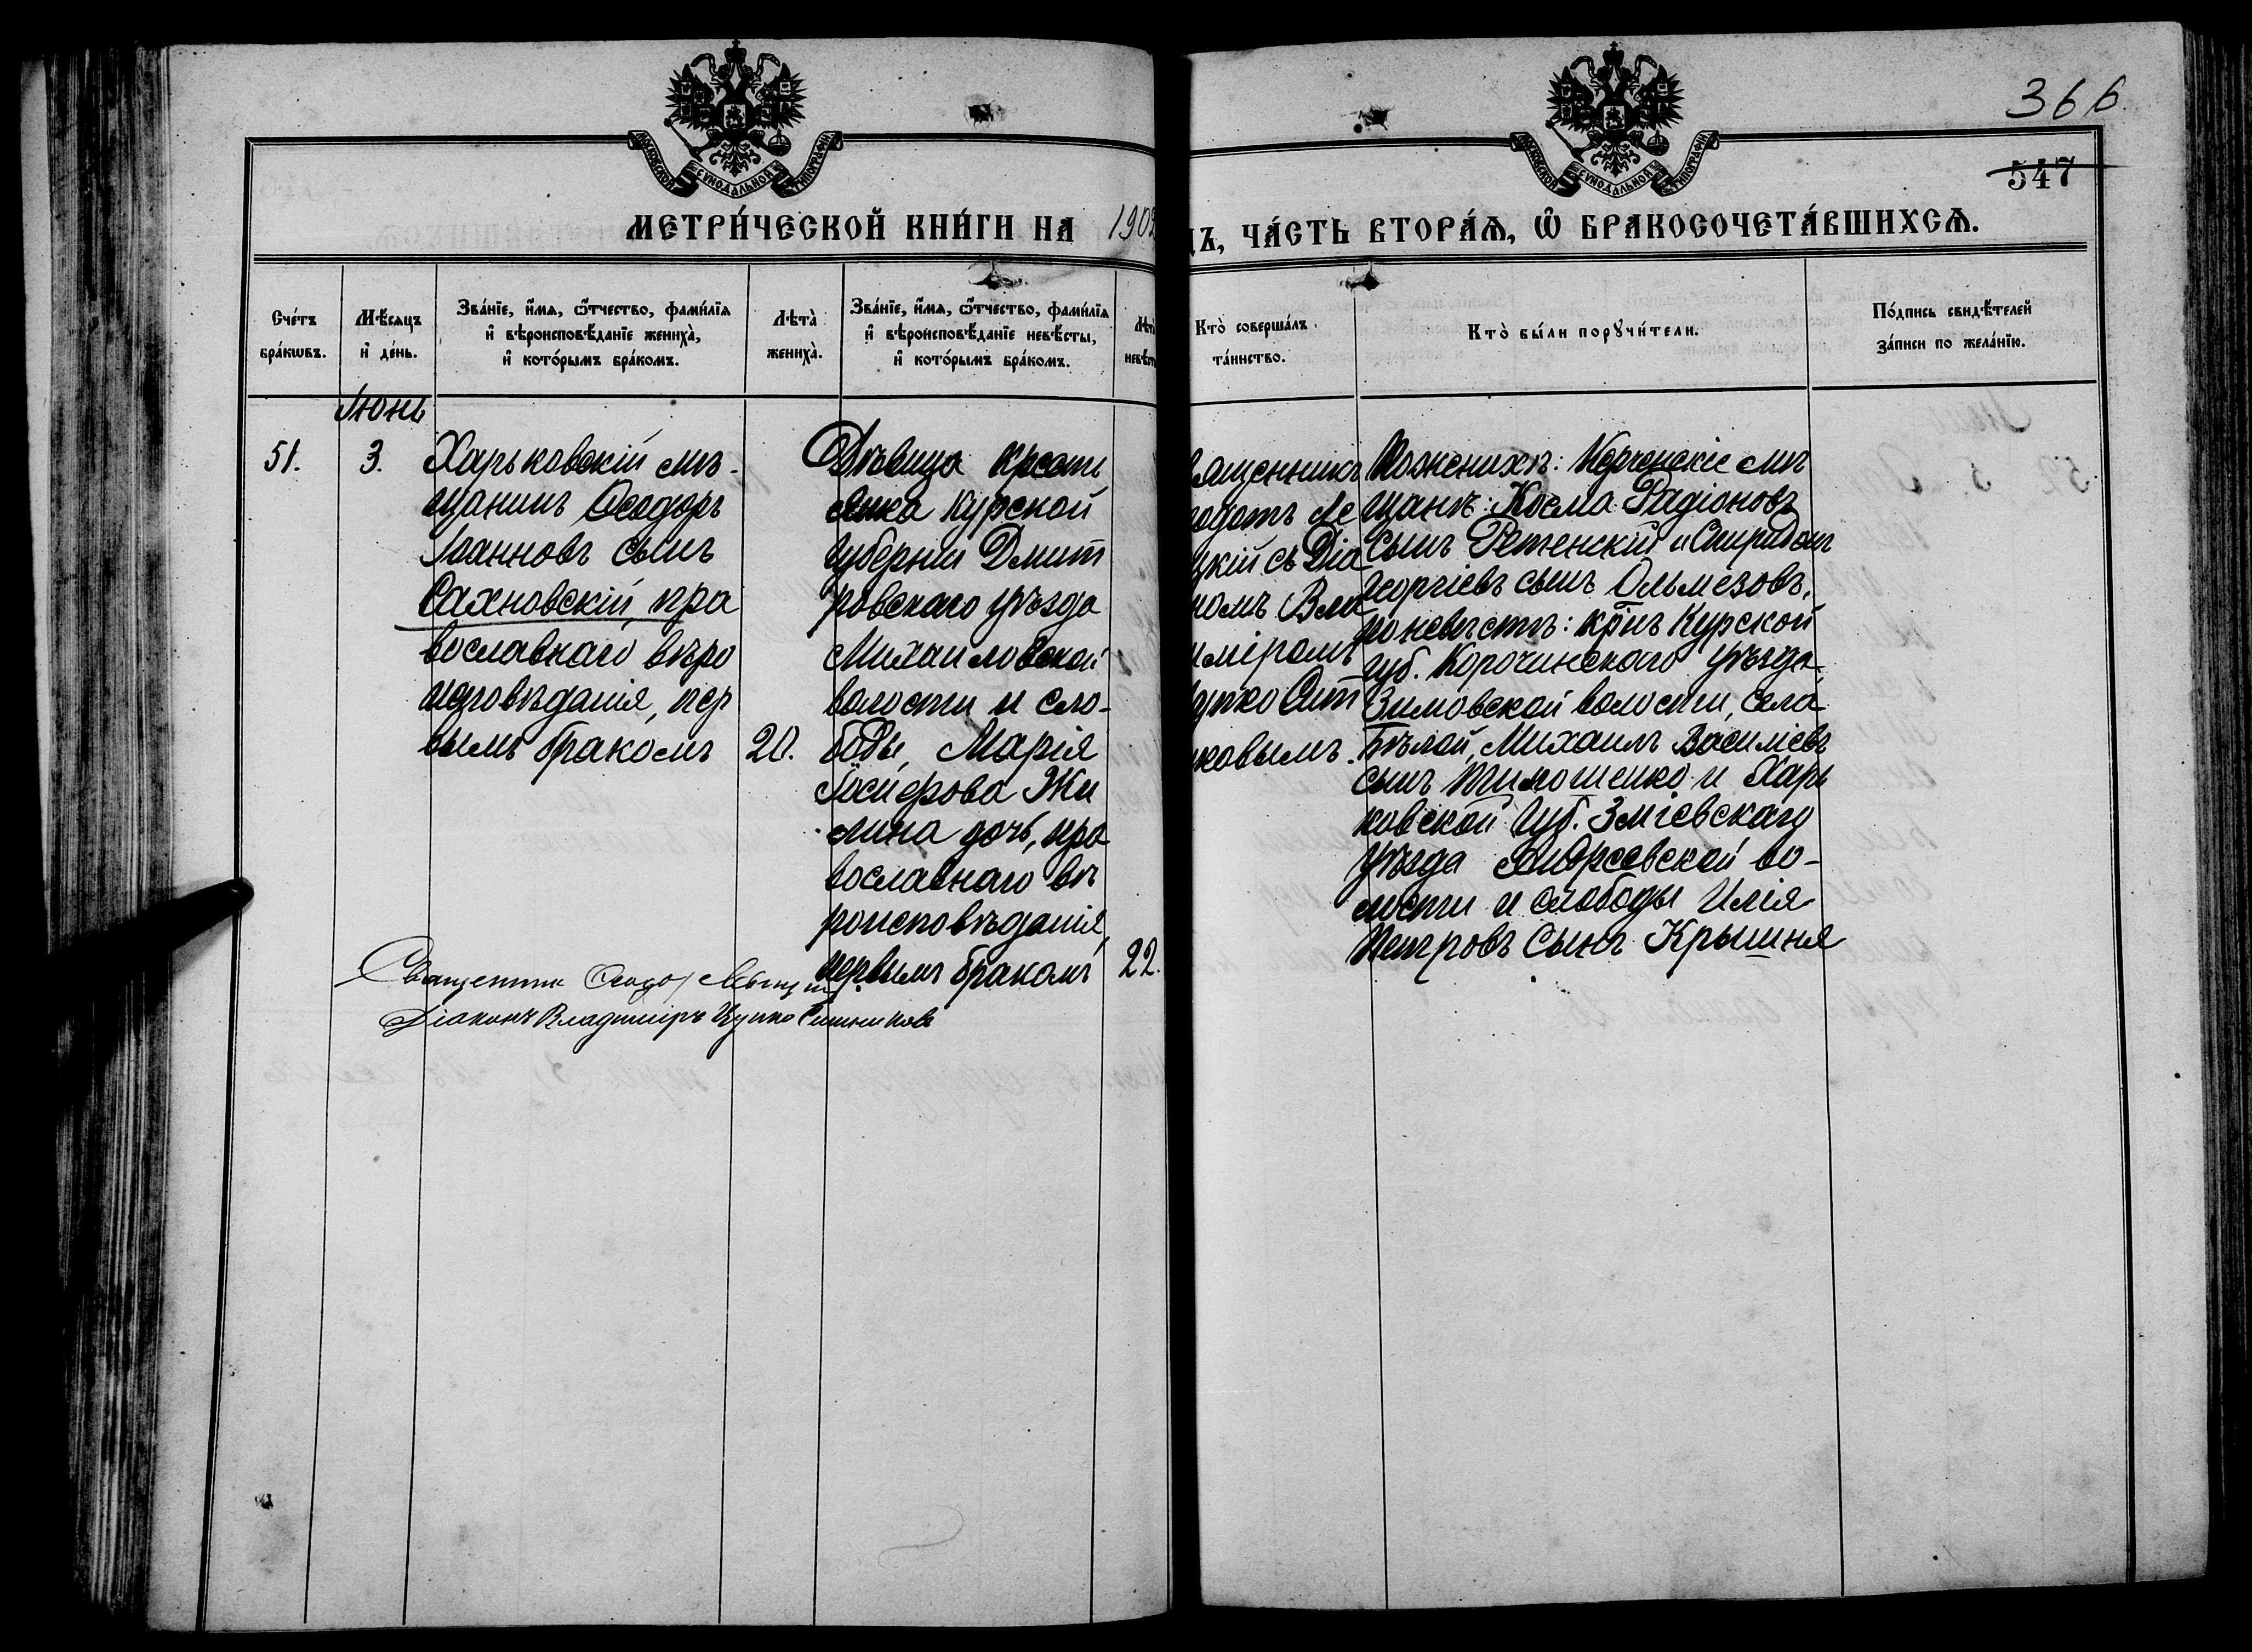 366
547
МОСКОВСКОЙ СѴНОДАЛЬНОЙ ТИПОГРАФІИ
МОСКОВСКОЙ СѴНОДАЛЬНОЙ ТИПОГРАФІИ
МЕТРИ́ЧЕСКОЙ КНИ́ГИ НА 1902
ДЪ, ЧА́СТЬ ВТОРА́Ѧ, Ѽ БРАКОСОЧЕТА́ВШИХСѦ.
Сче́тъ
бра́кѡвъ.
Мѣ́сяцъ
и҆ де́нь.
Зва́нїе, и҆́мѧ, ѻ҆́тчество, фами́лїѧ
и҆ вѣроисповѣ́данїе женихà,
и҆ кото́рымъ бра́комъ.
Лѣтà
женихà.
Зва́нїе, и҆́мѧ, ѻ҆́тчество, фами́лїѧ
и҆ вѣроисповѣ́данїе невѣ́сты,
и҆ кото́рымъ бра́комъ.
Лѣтà
невѣ́ст
Кто̀ соверша́лъ
та́инство.
Кто̀ бы́ли порꙋчи́тели.
По́дпись свидѣ́телей
за́писи по жела́нїю.
Іюнь
51.
3.
Харьковскій мѣ-
щанинъ Ѳеодоръ
Іоанновъ сынъ
Сахновскій, пра
вославнаго вѣро
исповѣданія, пер
вымъ бракомъ
20.
Дѣвица кресть
янка Курской
губерніи Дмит
ровскаго уѣзда
Михаиловской
волости и сло-
боды, Марія
Іосифова Жи
лина дочь, пра
вославнаго вѣ
роисповѣданія,
первымъ бракомъ
22.
вященникъ
одотъ Ле
цкій съ Діа
номъ Вла
иміромъ
упко Сит
ковымъ.
По женихѣ: Керченскіе мѣ
щане: Косма Радіоновъ
Сынъ Ретенскій и Спиридонъ
Георгіевъ сынъ Ольмезовъ,
по невѣстѣ: кр̃нъ Курской
губ. Корочинскаго уѣзда
Зимовской волости, села
Бѣлой, Михаилъ Василіевъ
сынъ Тимошенко и Харь
ковской губ. Зміевскаго
уѣзда Андреевской во-
лости и слободы Илія
Петровъ Сынъ Крышня
Священник
Діаконъ Владиміръ Цупко Ситниковъ